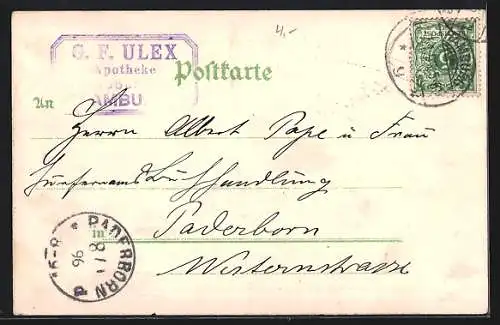 4,-
G. F. ULEX
Apotheke
AMBU
Postkarte
An
Herrn Albert Pape u Frau
Buchhandlung
in Paderborn
Westernstrasse
PADERBORN
8/1
96